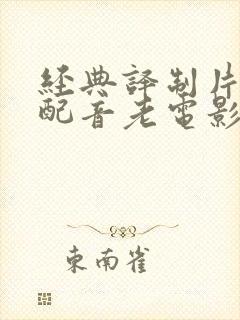 經典譯制片
配音老電影
東南雀